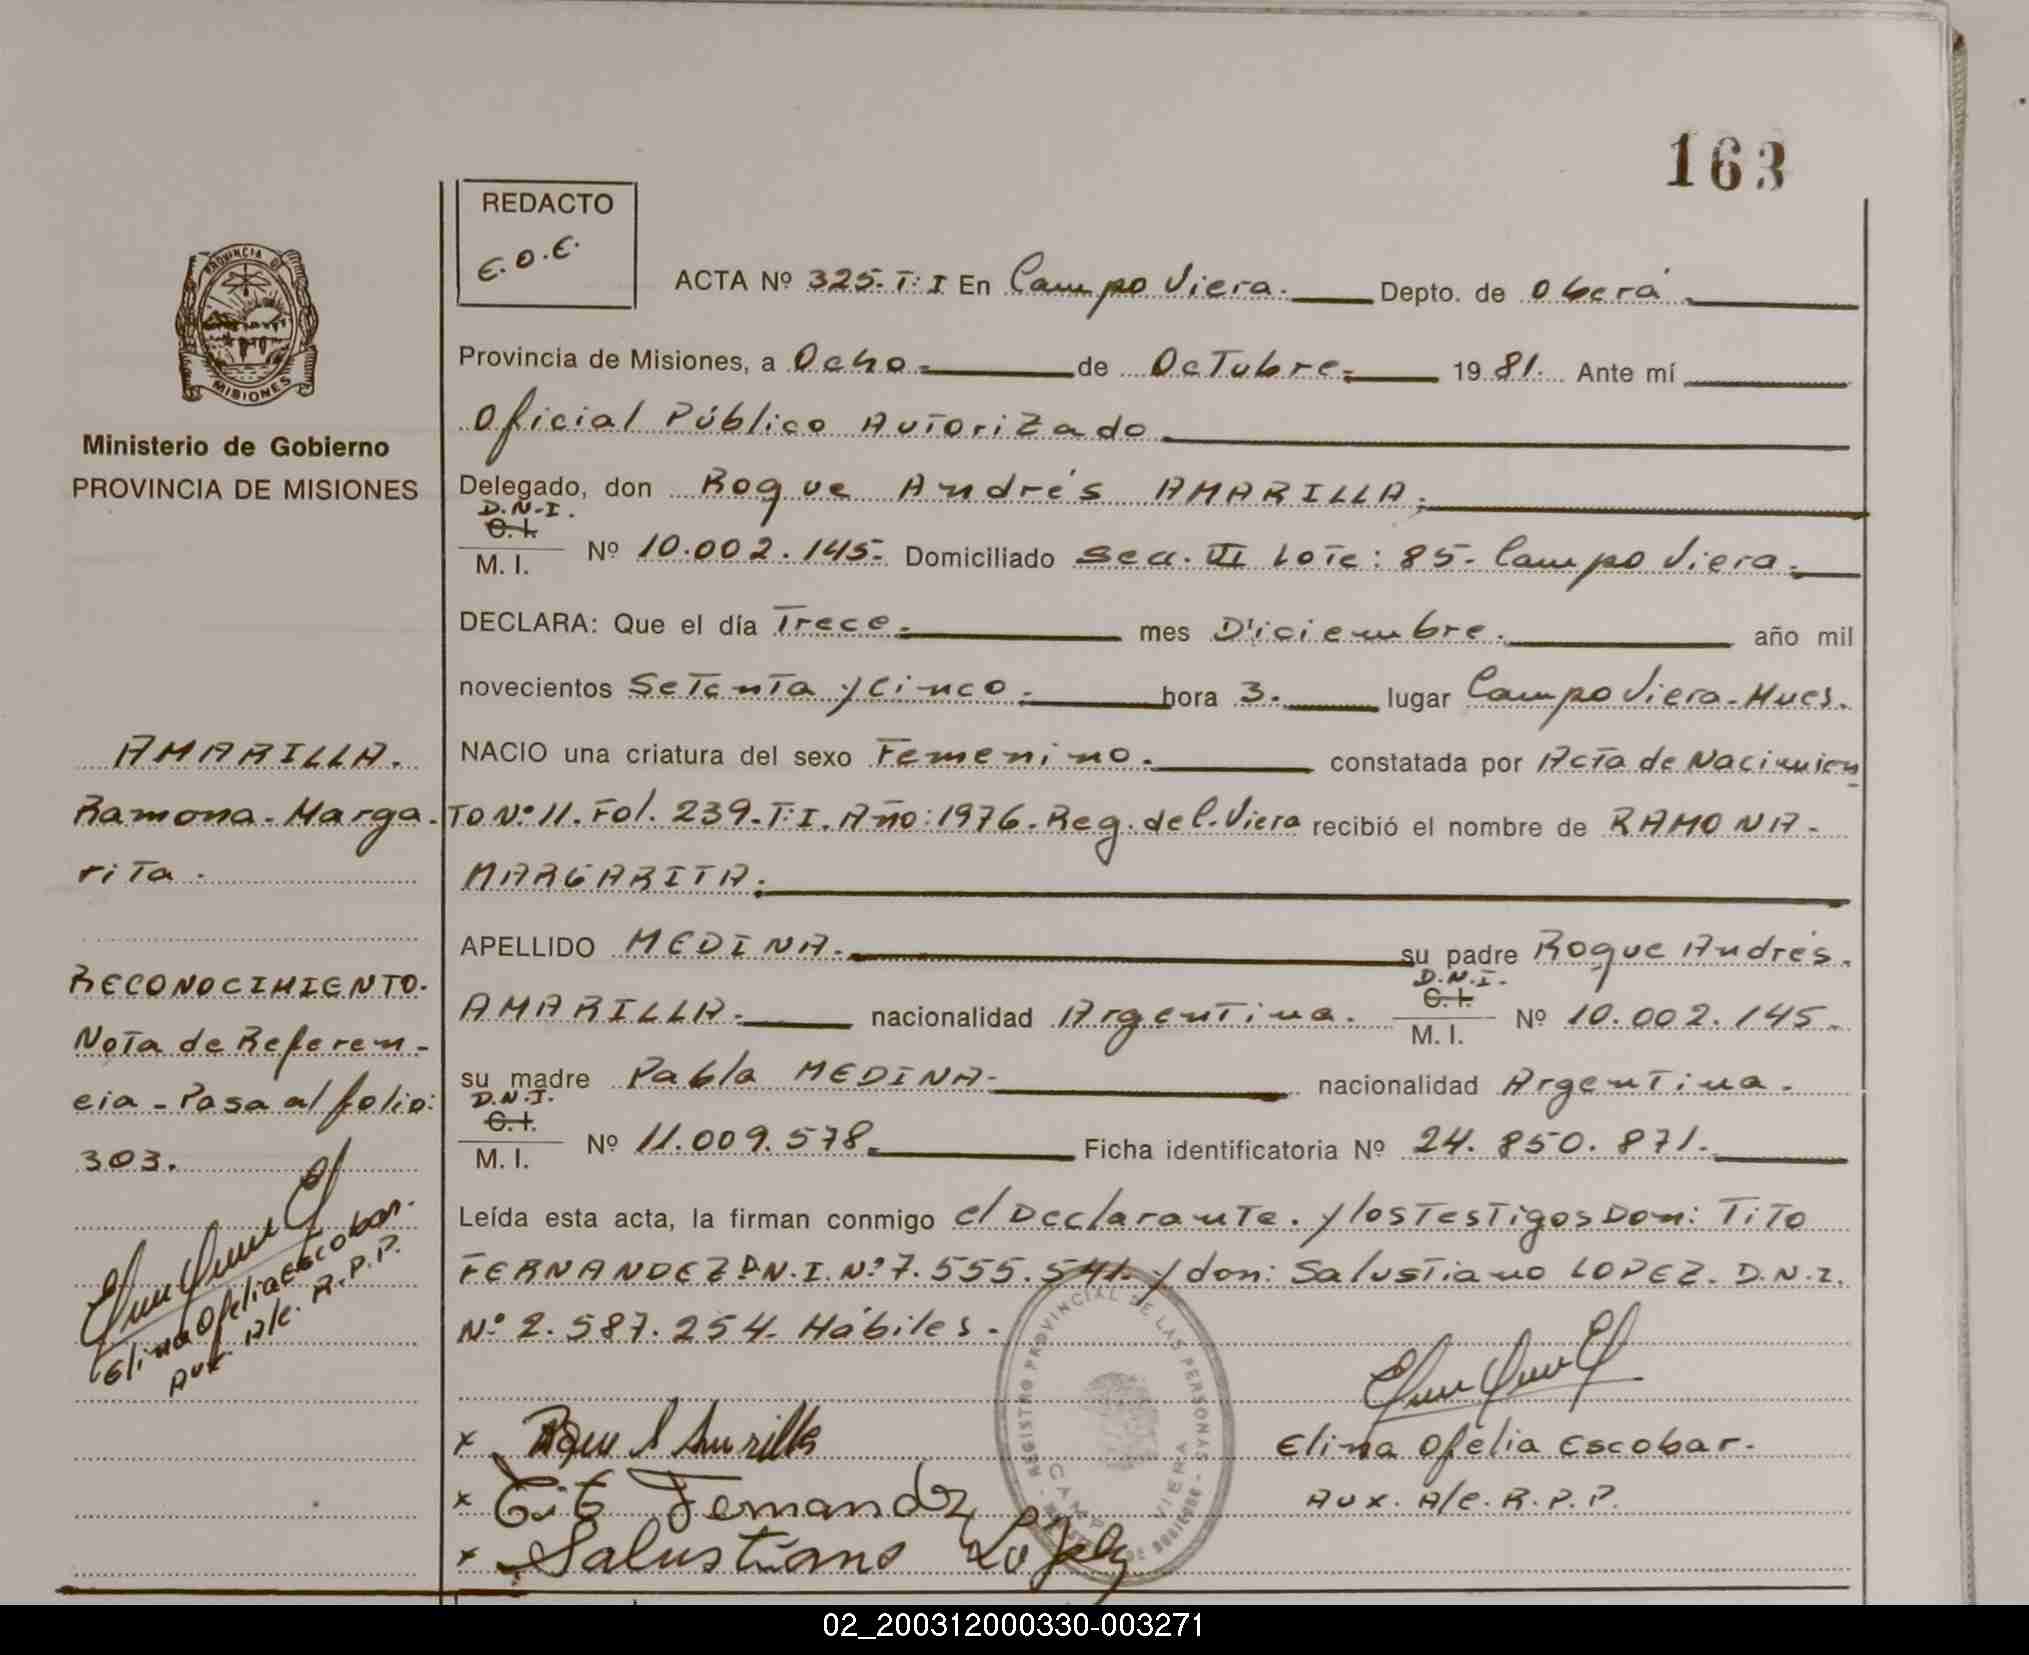 163
REDACTO
E.O.E.
ACTA Nº 325-T:I En Campo Viera. Depto. de Oberá
Provincia de Misiones, a Ocho de Octubre 1981. Ante mí
Oficial Público Autorizado
PROVINCIA DE
MISIONES
Ministerio de Gobierno
PROVINCIA DE MISIONES
Delegado, don Roque Andrés AMARILLA.
D.N.I.
C. I.
M. I. Nº 10.002.145- Domiciliado Sec. VI Lote: 85- Campo Viera.
DECLARA: Que el día Trece mes Diciembre. año mil
novecientos Setenta y Cinco. hora 3. lugar Campo Viera-Mnes.
NACIO una criatura del sexo Femenino. constatada por Acta de Nacimien
to Nº 11. Fol. 239-T:I. Año: 1976. Reg. de C. Viera recibió el nombre de RAMONA-
MARGARITA.
APELLIDO MEDINA. su padre Roque Andrés.
D.N.I.
C. I.
AMARILLA. nacionalidad Argentina. M. I. Nº 10.002.145.
su madre Pabla MEDINA- nacionalidad Argentina.
D.N.I.
C. I.
M. I. Nº 11.009.578. Ficha identificatoria Nº 24.850.871.
Leída esta acta, la firman conmigo el Declarante. y los Testigos Don: TITO
FERNANDEZ D.N.I. Nº 7.555.541- y don: Salustiano LOPEZ. D.N.I.
Nº 2.587.254- Hábiles.
AMARILLA.
Ramona-Marga-
rita.
RECONOCIMIENTO.
Nota de Referen-
cia-Pasa al folio:
303.
Elina Ofelia Escobar.
Aux. A/c. R.P.P.
x Roque A Amarilla
x Tito Fernandez
x Salustiano Lopez
REGISTRO PROVINCIAL DE LAS PERSONAS
CAMPO VIERA
Elina Ofelia Escobar.
Aux. A/c. R.P.P.
02_200312000330-003271